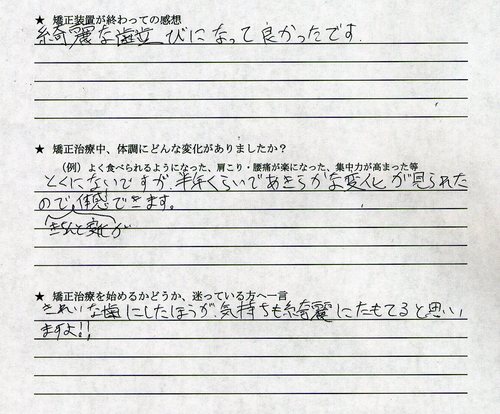 ★ 矯正装置が終わっての感想
綺麗な歯並びになって良かったです.
★ 矯正治療中、体調にどんな変化がありましたか?
(例)よく食べられるようになった、肩こり・腰痛が楽になった、集中力が高まった等
とくにないですが、半年くらいであきらかな変化が見られた
ので、体感できます。
きちんと変化が
★ 矯正治療を始めるかどうか、迷っている方へ一言
きれいな歯にしたほうが、気持ちも綺麗にたもてると思い
ますよ!!